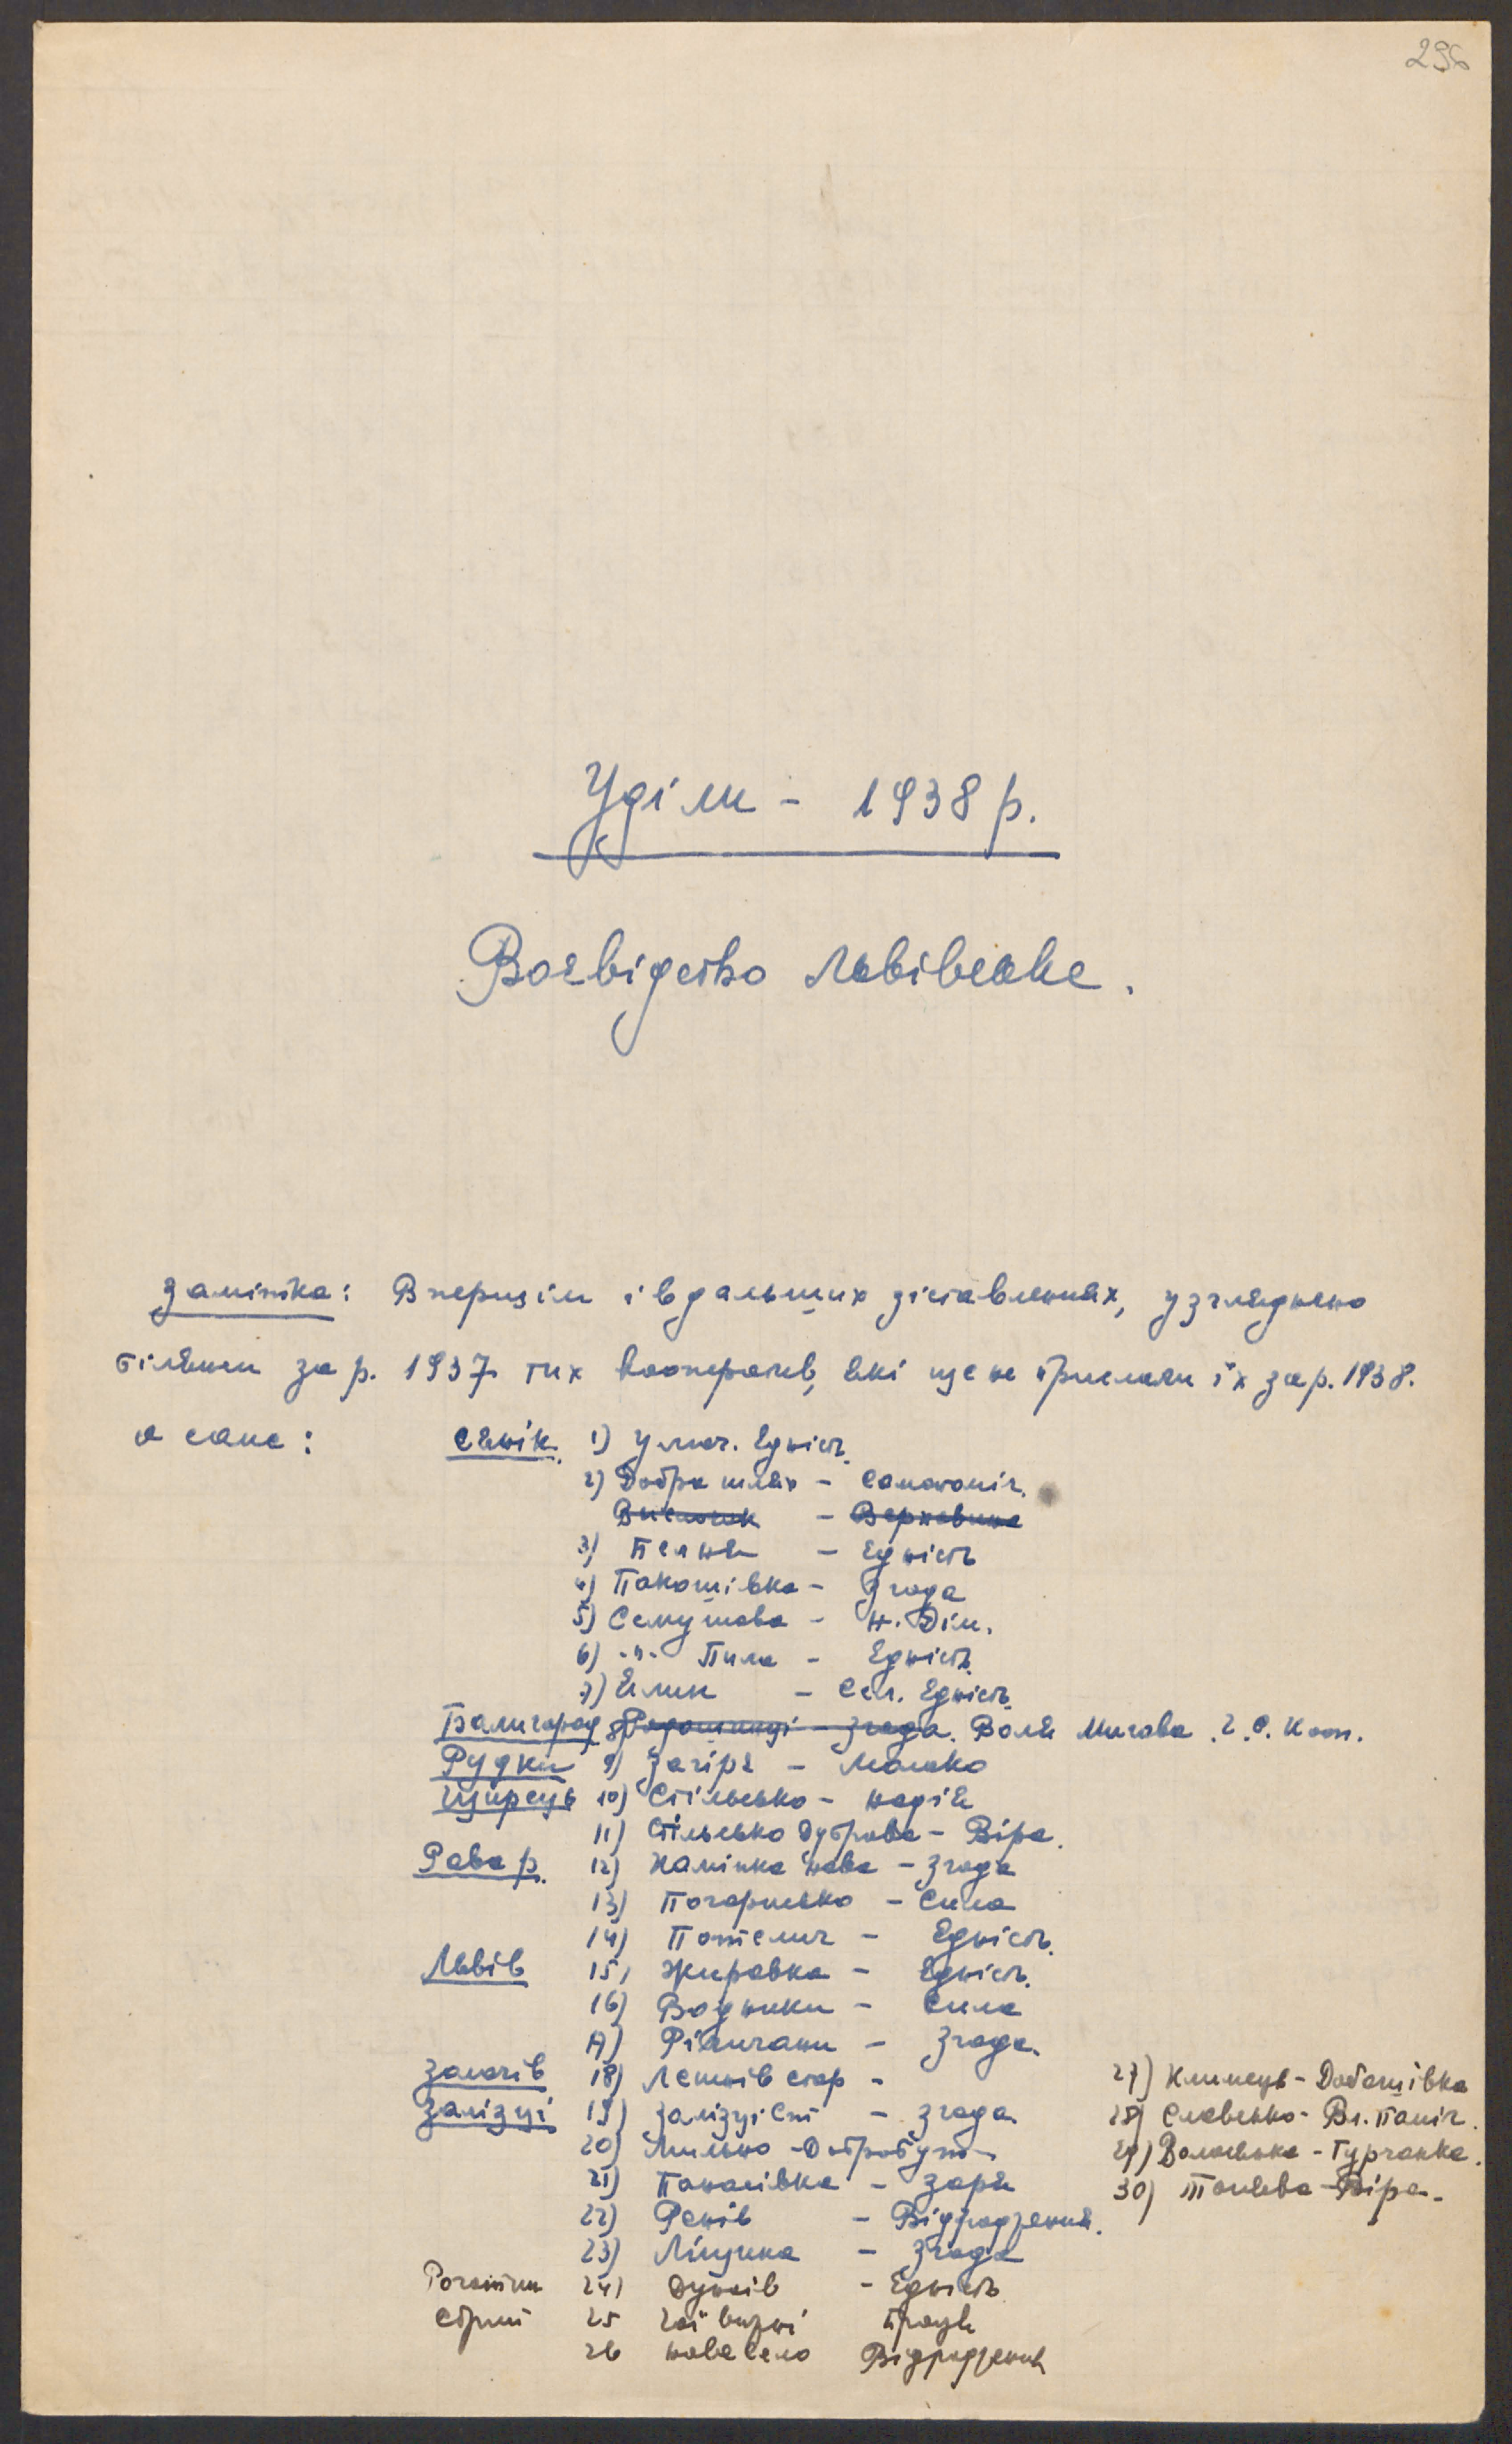 296
Уділи - 1938 р.
Воєвідство Львівське.
Замітка: В першім і в дальших зіставленнях, узгляднено
білянси за р. 1937 тих кооператив, які ще не прислали їх за р. 1938.
а саме: Сянік. 1) Улюч. Єдність.
2) Добра шлях - Самопоміч.
Височок - Верховина
3) Пельня - Єдність
4) Пакошівка - Згода
5) Семушова - Н. Дім.
6) -"- Пила - Єдність.
7) Ялин - Сел. Єдність.
Балигород 8) - Згода. Воля Мигова. Г. С. Кооп.
Рудки 9) Загірє - Молоко
Щирець 10) Стільсько - Надія
11) Стільсько Дуброва - Віра.
Рава р. 12) Камінка Нова - Згода
13) Погорисько - Сила
14) Потелич - Єдність.
Львів 15) Жиравка - Єдність.
16) Водники - Сила
17) Підличани - Згода.
Золочів 18) Летнів стар -
Залізці 19) Залізці Ст - Згода.
20) Мильно - Добробут
21) Панасівка - Зоря
22) Ренів - Відродження.
23) Ліщина - Згода
Рогатин 24) Дунаїв - Єдність
Стрий 25 Гаї вижні Праця
26 Нове Село Відродження
27) Климець - Довбошівка
28) Славсько - Вл. Поміч.
29) Волосянка - Гурчанка.
30) - Віра.